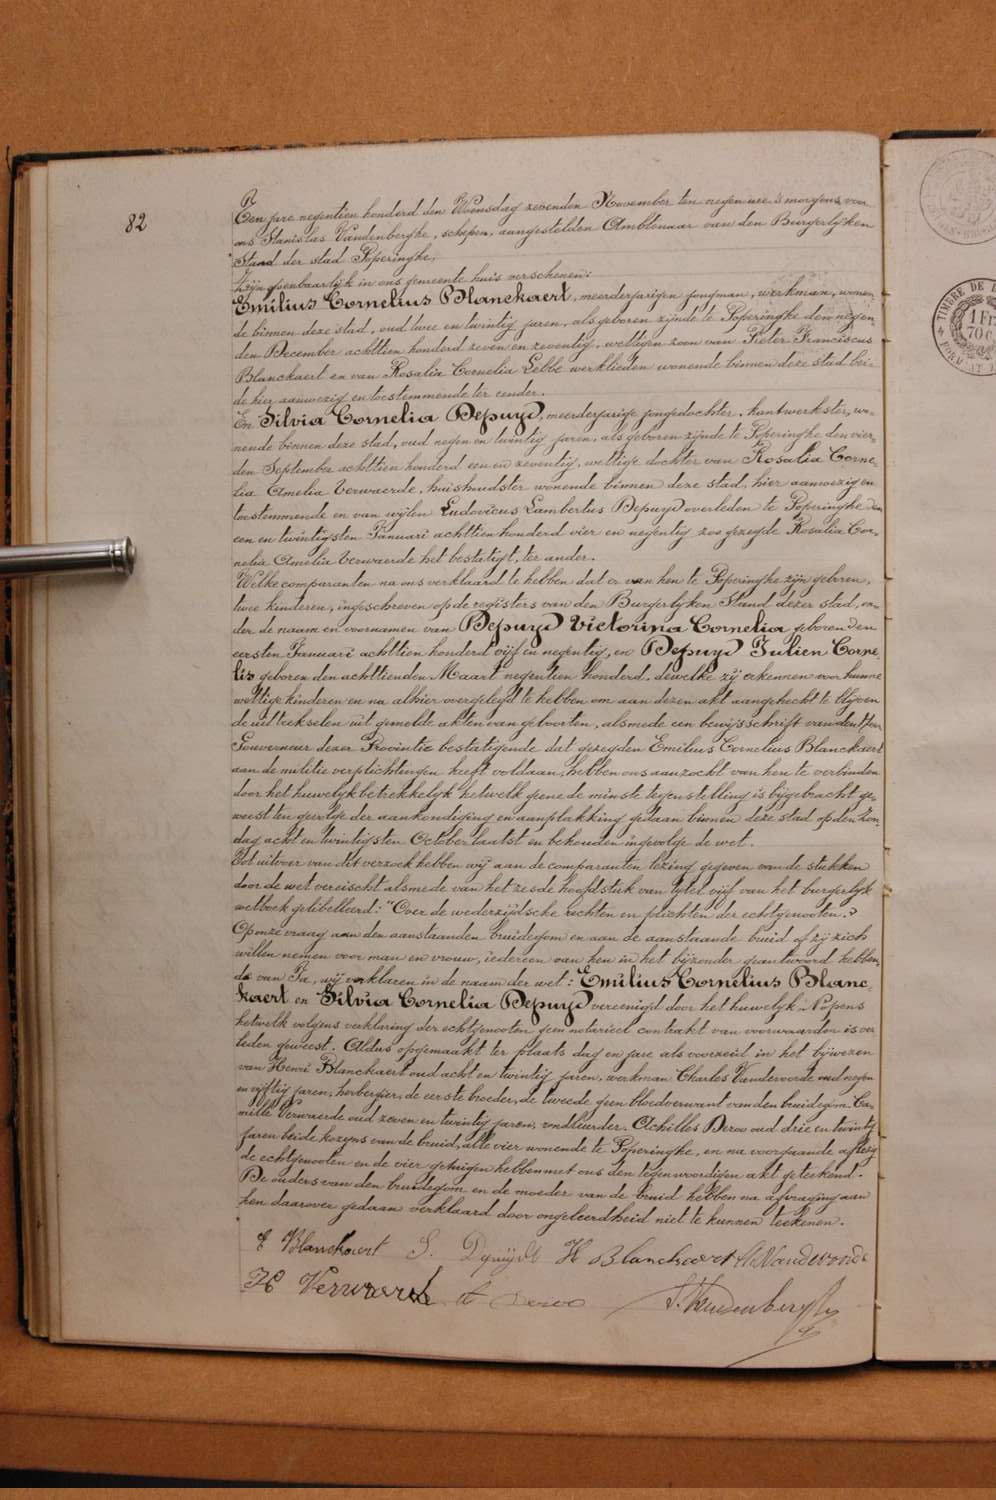 82
Ten jare negentien honderd den Woensdag zevenden November ten negen ure 's morgens, voor
ons Stanislas Vandenberghe, schepen, aangestelden Ambtenaar van den Burgerlyken
Stand der stad Poperinghe,
Zijn openbaarlyk in ons gemeente huis verschenen:
Emilius Cornelius Blanckaert, meerderjarigen jongman, werkman, wonen-
de binnen deze stad, oud twee en twintig jaren, als geboren zijnde te Poperinghe den negen-
den December achttien honderd zeven en zeventig, wettigen zoon van Pieter Franciscus
Blanckaert en van Rosalia Cornelia Lebbe werklieden wonende binnen deze stad bei-
de hier aanwezig en toestemmende ter eender.
En Silvia Cornelia Depuyd, meerderjarige jongedochter, kantwerkster, wo-
nende binnen deze stad, oud negen en twintig jaren, als geboren zijnde te Poperinghe den vier-
den September achttien honderd een en zeventig, wettige dochter van Rosalia Corne-
lia Amelia Verwaerde, huishoudster wonende binnen deze stad, hier aanwezig en
toestemmende en van wijlen Ludovicus Lambertus Depuyd overleden te Poperinghe den
een en twintigsten Januari achttien honderd vier en negentig zoo gezegde Rosalia Cor-
nelia Amelia Verwaerde het bestatigt, ter ander.
Welke comparanten na ons verklaard te hebben dat er van hen te Poperinghe zijn geboren,
twee kinderen, ingeschreven op de registers van den Burgerlyken Stand dezer stad, on-
der de naam en voornamen van Depuyd Victorina Cornelia geboren den
eersten Januari achttien honderd vijf en negentig, en Depuyd Julien Corne-
lis geboren den achttienden Maart negentien honderd, dewelke zij erkennen voor hunne
wettige kinderen en na alhier overgelegd te hebben om aan dezen akt aangehecht te blijven
de uittrekselen uit gemelde akten van geboorten, alsmede een bewijsschrift van den Heer
Gouverneur dezer Provintie bestatigende dat gezegden Emilius Cornelius Blanckaert
aan de militie verplichtingen heeft voldaan, hebben ons aanzocht van hen te verbinden
door het huwelyk betrekkelyk hetwelk geene de minste tegenstelling is bijgebracht ge-
weest ten gevolge der aankondiging en aanplakking gedaan binnen deze stad op den Zon-
dag acht en twintigsten October laatst en behouden ingevolge de wet.
Tot uitvoer van dit verzoek hebben wij aan de comparanten lezing gegeven van de stukken
door de wet vereischt alsmede van het zesde hoofdstuk van tytel vijf van het burgerlyk
wetboek gelibelleerd: "Over de wederzijdsche rechten en plichten der echtgenooten."
Op onze vraag aan den aanstaanden bruidegom en aan de aanstaande bruid of zij zich
willen nemen voor man en vrouw, iedereen van hen in het bijzonder geantwoord hebben-
de van Ja, wij verklaren in de naam der wet: Emilius Cornelius Blanc-
kaert en Silvia Cornelia Depuyd vereenigd door het huwelyk. Nopens
hetwelk volgens verklaring der echtgenooten geen notarieel contrakt van voorwaarden is ver
leden geweest. Aldus opgemaakt ter plaats dag en jare als voorzeid in het bijwezen
van Henri Blanckaert oud acht en twintig jaren, werkman Charles Vandevoorde oud negen
en vijftig jaren, herbergier, de eerste broeder, de tweede geen bloedverwant van den bruidegom. Ca-
mille Verwaerde oud zeven en twintig jaren, Achilles Deroo oud drie en twintig
jaren beide kozyns van de bruid, alle vier wonende te Poperinghe, en na voorgaande aflezing
de echtgenooten en de vier getuigen hebben met ons den tegenwoordigen akt geteekend.
De ouders van den bruidegom en de moeder van de bruid hebben na afvraging aan
hen daarover gedaan verklaard door ongeleerdheid niet te kunnen teekenen.
E Blanckaert S. Depuijdt H Blanckaert Vandevoorde
Verwaerde A Deroo S. Vandenberghe
TIMBRE DE
1 Fr
70 C